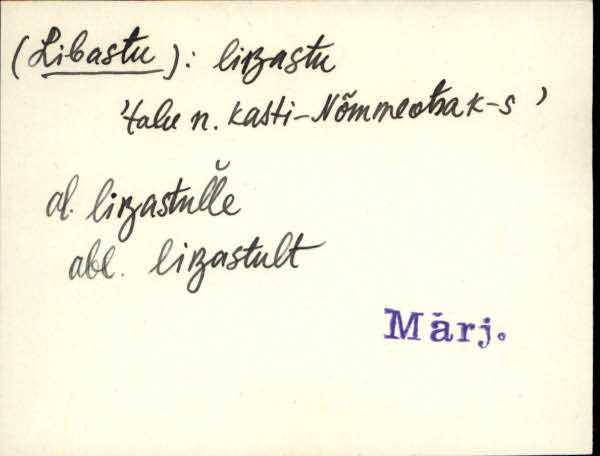 (Libastu): liʙastu
'talu n. Kasti-Nõmmeotsa k-s'
al. liʙastul̆l̆e
abl. liʙastult
Märj.